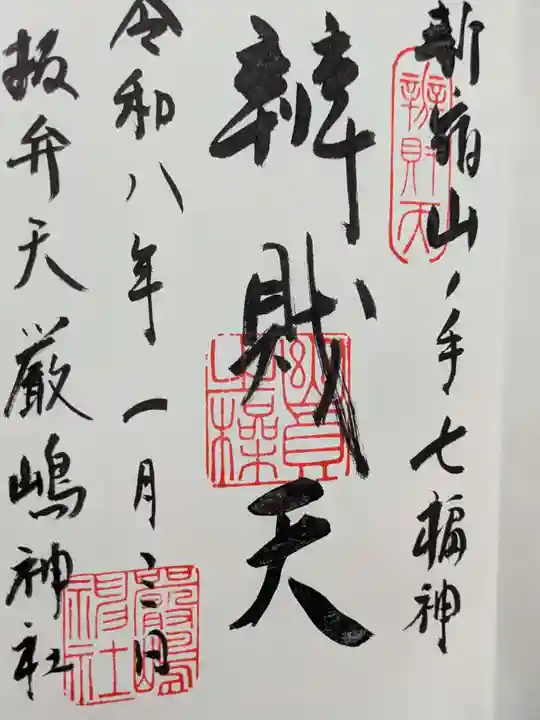 新宿山ノ手七福神
辨財天
辨財天
令和八年一月 日
抜弁天厳嶋神社
嚴嶋神社